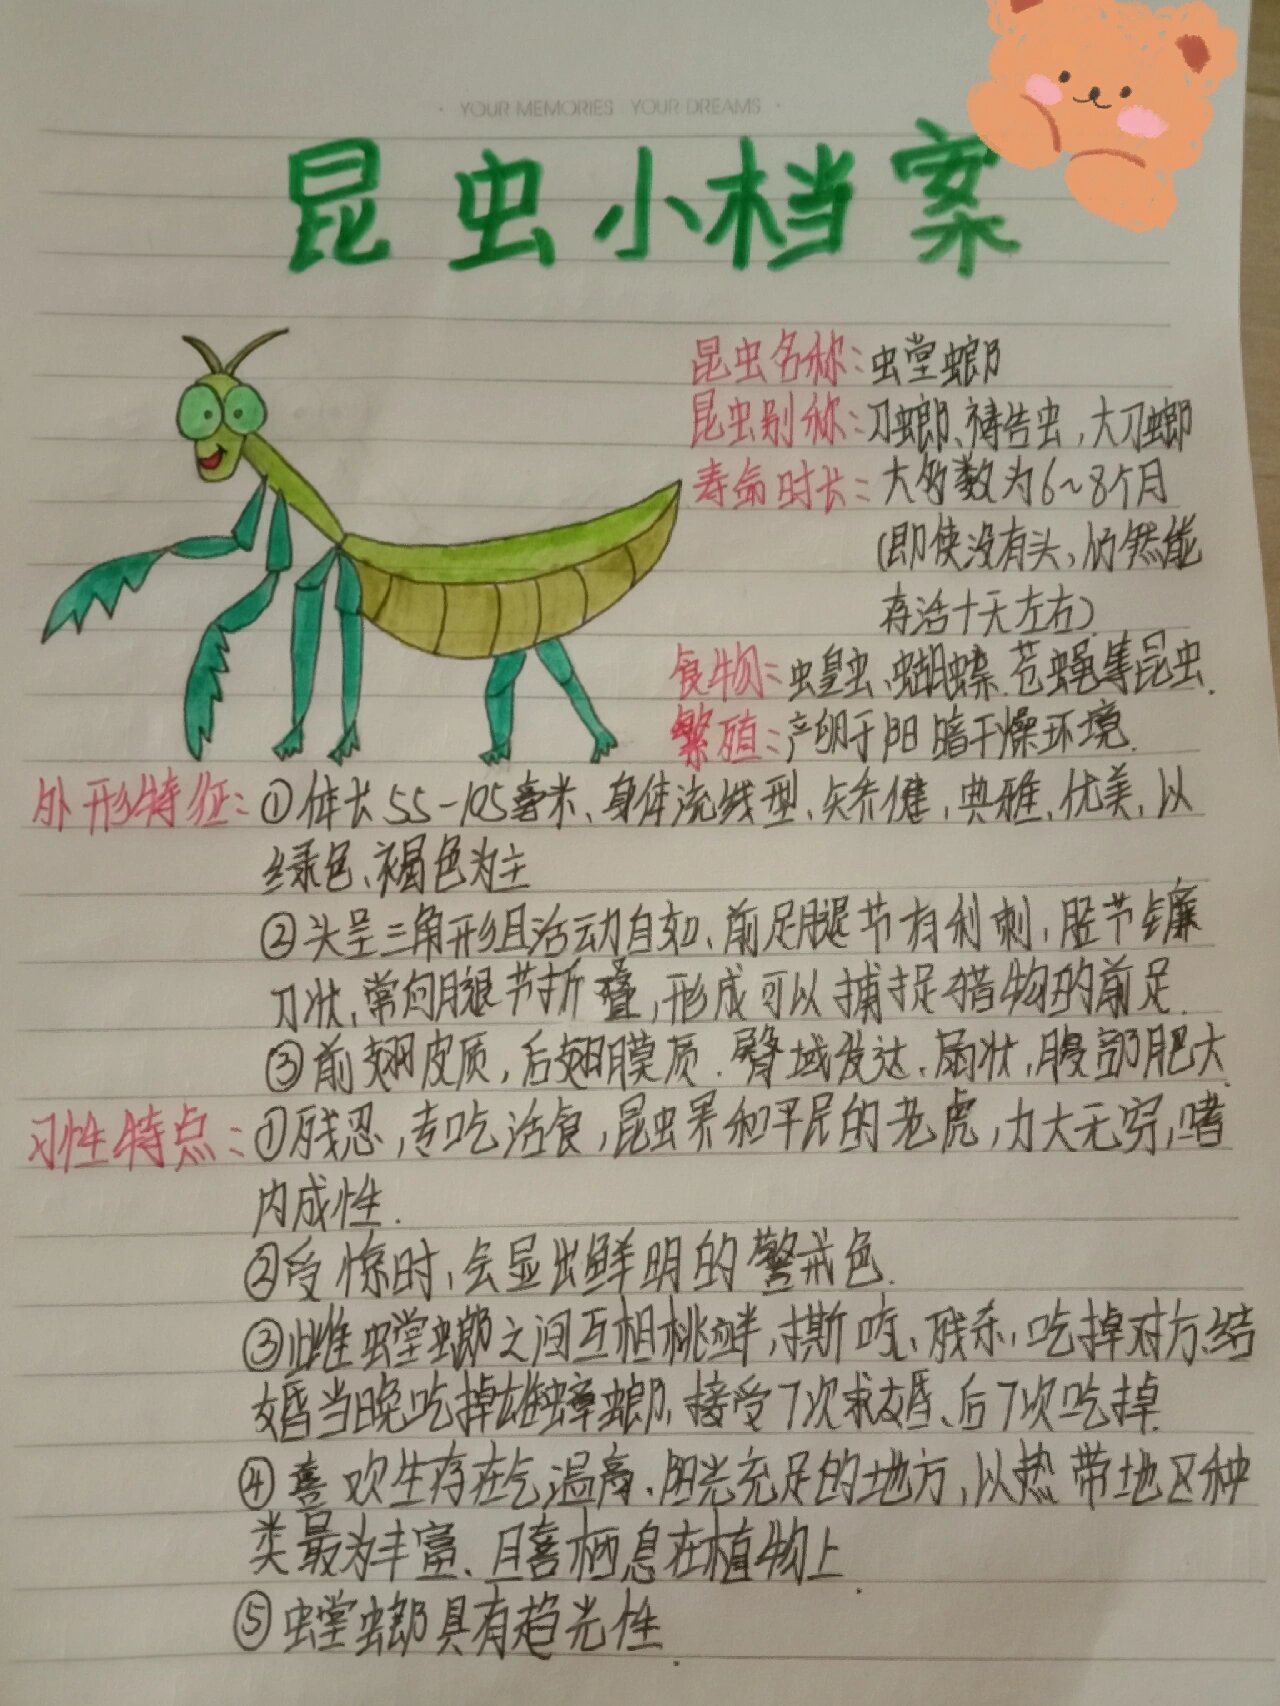 · YOUR MEMORIES YOUR DREAMS ·
昆虫小档案
昆虫名称：螳螂
昆虫别称：刀螂、祷告虫，大刀螂
寿命时长：大多数为6~8个月
(即使没有头、仍然能
存活十天左右)
食物：蝗虫、蝴蝶、苍蝇等昆虫.
繁殖：产卵于阳暗干燥环境.
外形特征：①体长55-105毫米、身体流线型、矫健，典雅、优美，以
绿色、褐色为主
②头呈三角形且活动自如、前足腿节有利刺，胫节镰
刀状，常向腿节折叠，形成可以捕捉猎物的前足.
③前翅皮质，后翅膜质.臀域发达、扇状，腹部肥大
习性特点：①残忍，专吃活食，昆虫界和平民的老虎，力大无穷，嗜
肉成性.
②受惊时，会显出鲜明的警戒色.
③雌螳螂之间互相挑衅，撕咬、残杀，吃掉对方、结
婚当晚吃掉雄螳螂，接受7次求婚、后7次吃掉.
④喜欢生存在气温高、阳光充足的地方，以热带地区种
类最为丰富、且喜栖息在植物上
⑤螳螂具有趋光性.